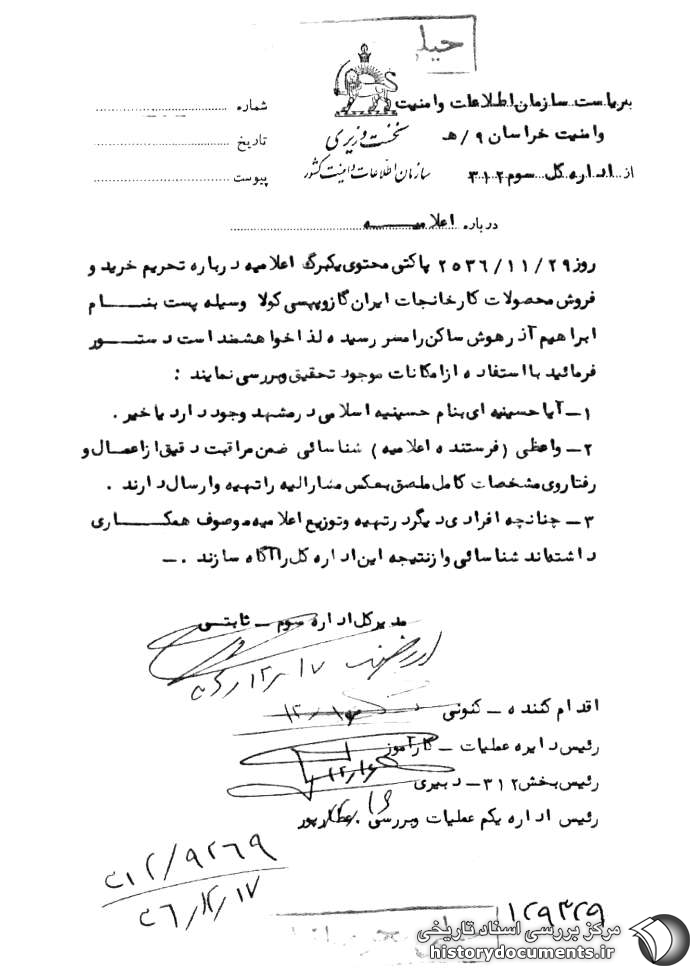 خیلی
بریاست سازمان اطلاعات و امنیت
شماره
وامنیت خراسان ۹/هـ
نخست وزیری
تاریخ
از اداره کل سوم ۳۱۲
سازمان اطلاعات و امنیت کشور
پیوست
درباره اعلامیــه
روز ۲۵۳۶/۱۱/۲۹ پاکتی محتوی یکبرگ اعلامیه درباره تحریم خرید و
فروش محصولات کارخانجات ایران گاز و پپسی کولا وسیله پست بنــام
ابراهیم آذرهوش ساکن رامسر رسیده لذا خواهشمند است دستــور
فرمائید با استفاده از امکانات موجود تحقیق و بررسی نمایند :
۱ـ آیا حسینیه ای بنام حسینیه اسلامی در مشهد وجود دارد یا خیر .
۲ـ واعظی (فرستنده اعلامیه) شناسائی ضمن مراقبت دقیق از اعمال و
رفتار وی مشخصات کامل ملصق بعکس مشارالیه را تهیه و ارسال دارند .
۳ـ چنانچه افرادی دیگر در تهیه و توزیع اعلامیه موصوف همکــاری
داشته‌اند شناسائی و از نتیجه این اداره کل را آگاه سازند .ـ
مدیرکل اداره سوم ـ ثابتی
۳۶/۱۲/۱۷
اقدام کننده ـ کنونی
رئیس دایره عملیات ـ کارآموز
۱۲/۱۶
رئیس بخش ۳۱۲ ـ دبیری
رئیس اداره یکم عملیات و بررسی . عطارپور
۳۱۲/۹۲۶۹
۳۶/۱۲/۱۷
۱۲۹۳۲۹
مرکز بررسی اسناد تاریخی
historydocuments.ir